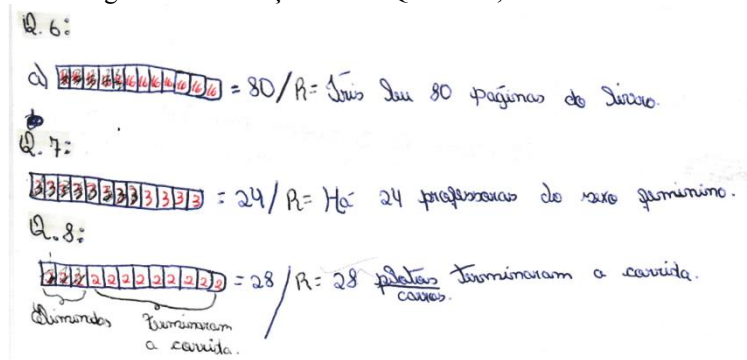 Q.6:
a) 16 16 16 16 16 16 16 = 80 / R= Íris leu 80 páginas do livro.
Q.7:
3 3 3 3 3 3 3 3 3 3 3 3 = 24 / R= Há 24 professoras do sexo feminino.
Q.8:
2 2 2 2 2 2 2 2 2 2 2 2 2 = 28 / R= 28 pilotos terminaram a corrida.
carros.
Eliminados terminaram
a corrida.